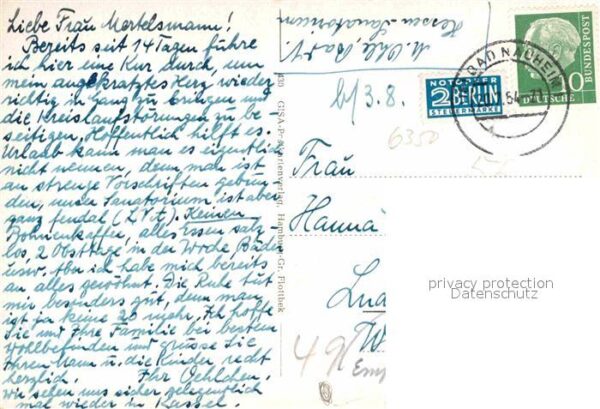 Liebe Frau Mertelsmann!
Bereits seit 14 Tagen führe
ich hier eine Kur durch, um
mein angekratztes Herz wieder
richtig in Gang zu bringen und
die Kreislaufstörungen zu be-
seitigen. Hoffentlich hilft es.
Urlaub kann man es eigentlich
nicht nennen, denn man ist
an strenge Vorschriften gebun-
den, unser Sanatorium ist aber
ganz feudal (LVA). Keinen
Bohnenkaffee, alles Essen salz-
los, 2 Obsttage in der Woche, Bäder
usw. Aber ich habe mich bereits
an alles gewöhnt. Die Ruhe tut
mir besonders gut, denn man
ist ja keine 20 mehr. Ich hoffe
Sie und Ihre Familie bei bestem
Wohlbefinden und grüsse Sie
Ihren Mann u. die Kinder recht
herzlich. Ihr Oehlchen.
Wir sehen uns sicher gelegentlich
mal wieder in Kassel.
Hessen Sanatorium
b/3.8.
6350
Frau
Hanna
49
GISA-Pr Hamburg-Gr. Flottbek
NOTOPFER
2 BERLIN
STEUERMARKE
BAD NAUHEIM
54
10
DEUTSCHE
BUNDESPOST
privacy protection
Datenschutz